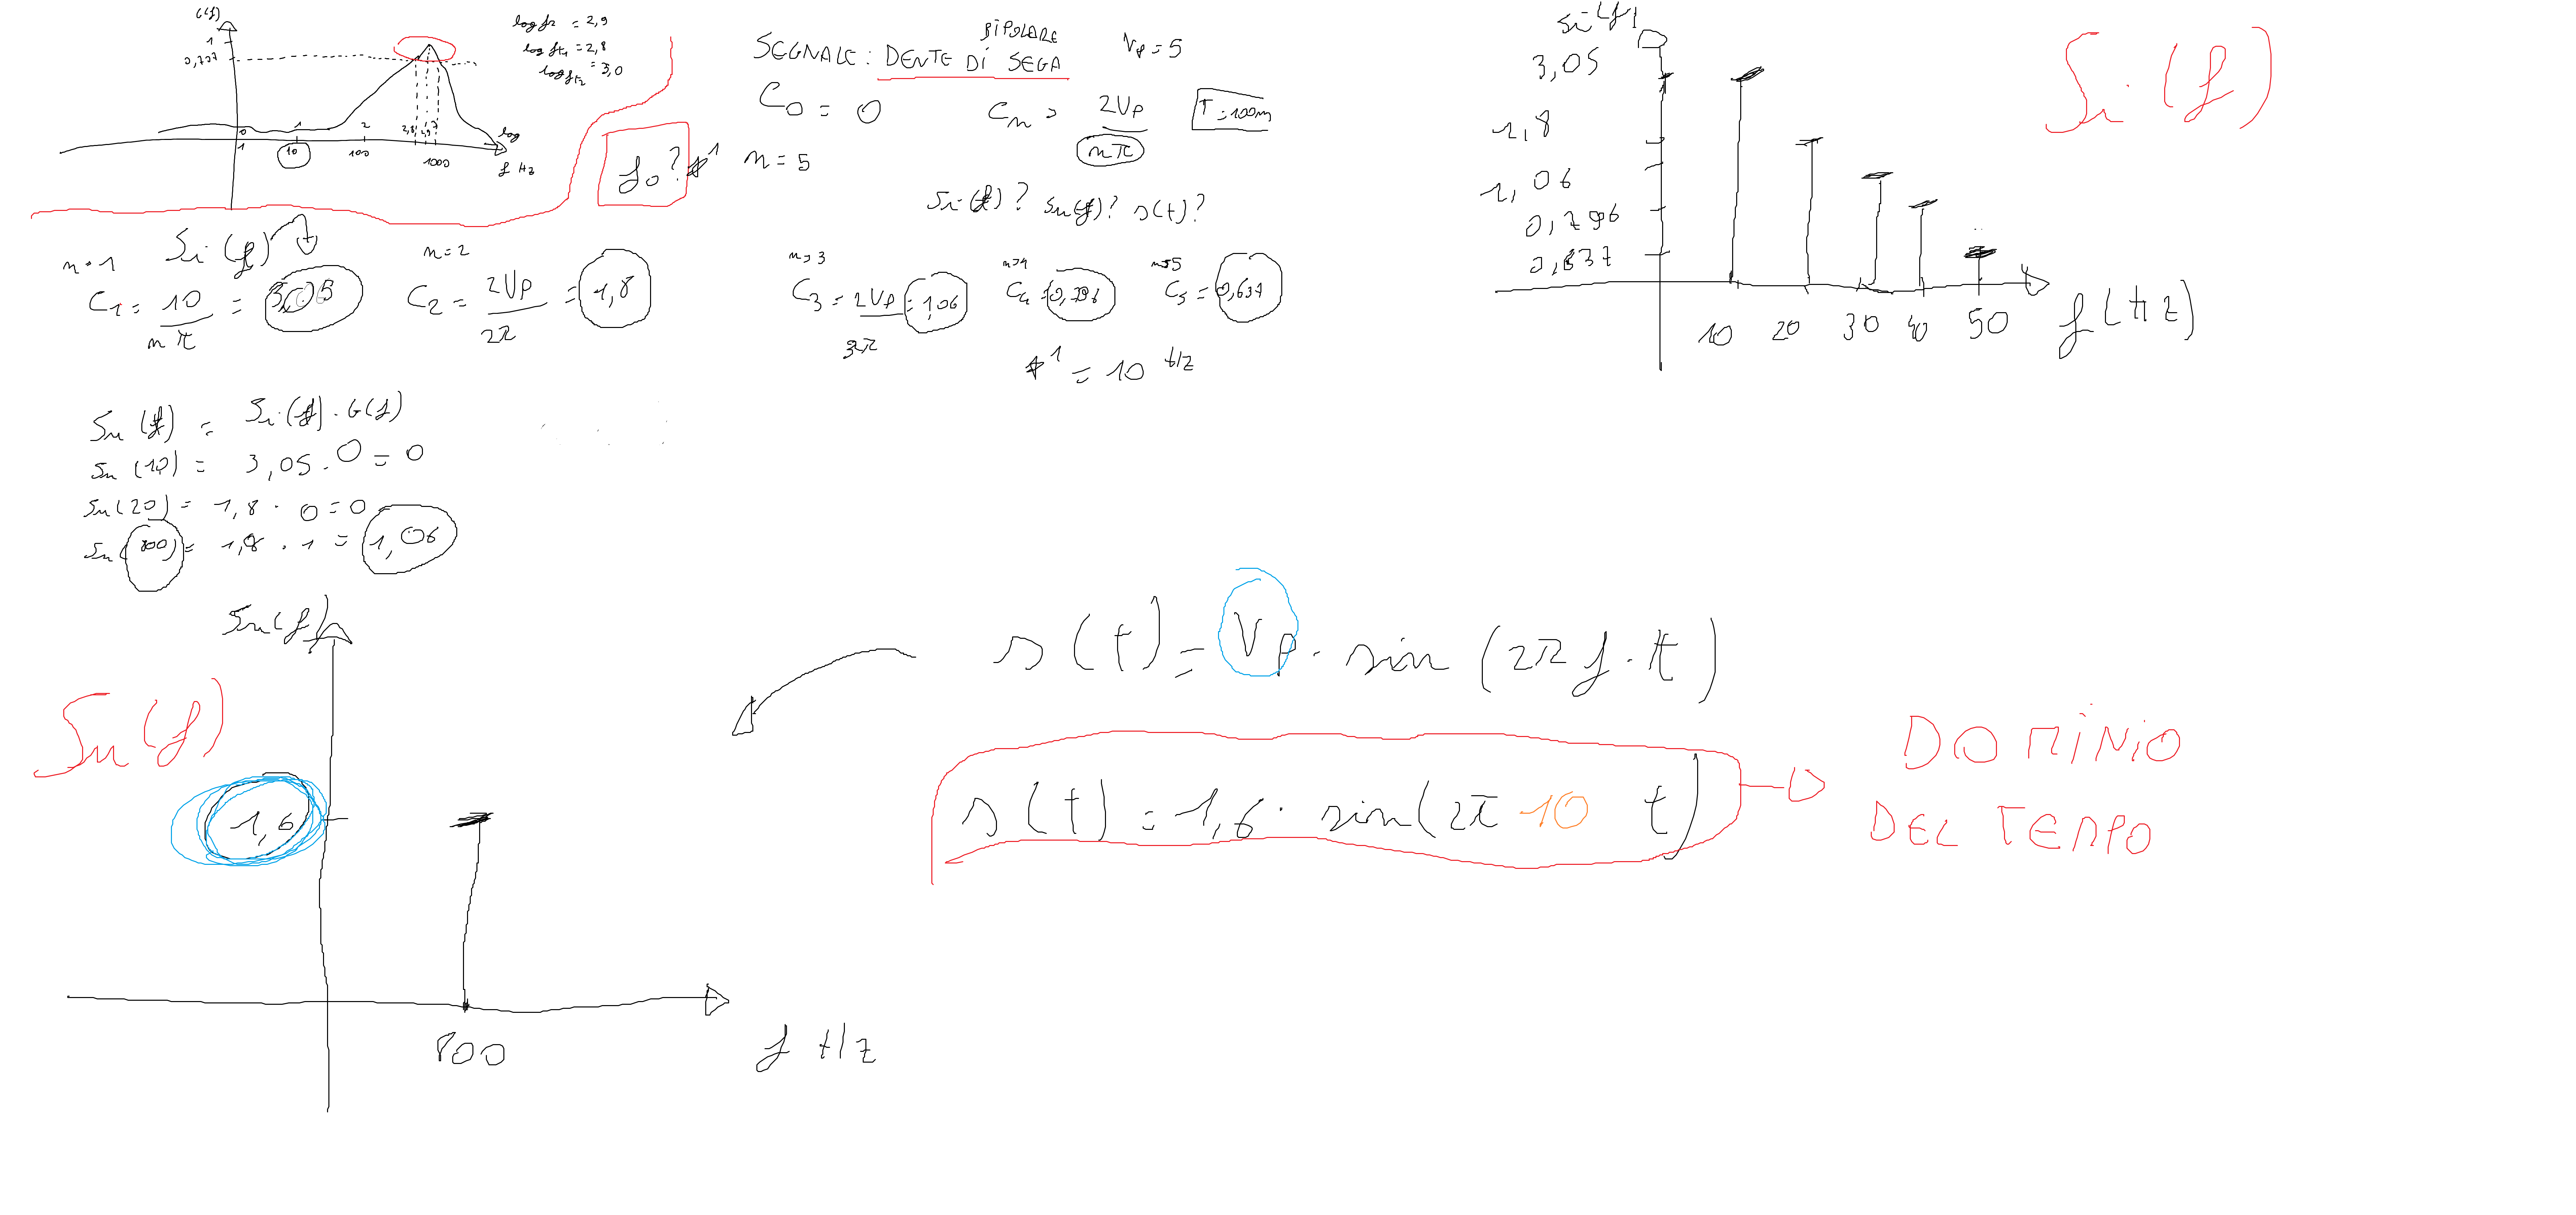 G(f)
1
0,707
log f2 = 2,9
log ft1 = 2,8
log ft2 = 3,0
0 1 2 2,8 2,9
log
1 10 100 1000
f Hz
f0?
SEGNALE: DENTE DI SEGA
BIPOLARE
Vp = 5
C0 = 0
Cn =
2Vp
nπ
T = 100m
n = 5
Si(f)? Su(f)? s(t)?
Si(f)
n = 1
C1 = 10 = 3,05
nπ
n = 2
C2 = 2Vp = 1,8
2π
n = 3
C3 = 2Vp = 1,06
3π
n = 4
C4 = 0,796
n = 5
C5 = 0,637
= 10 Hz
Si(f)
3,05
1,8
1,06
0,796
0,637
10 20 30 40 50 f (Hz)
Si(f)
Su(f) = Si(f) . G(f)
Su(10) = 3,05 . 0 = 0
Su(20) = 1,8 . 0 = 0
Su(800) = 1,8 . 1 = 1,06
Su(f)
Su(f)
1,6
800
f Hz
s(t) = Vp . sin (2π f . t)
s(t) = 1,6 . sin(2π 10 t)
DOMINIO
DEL TEMPO